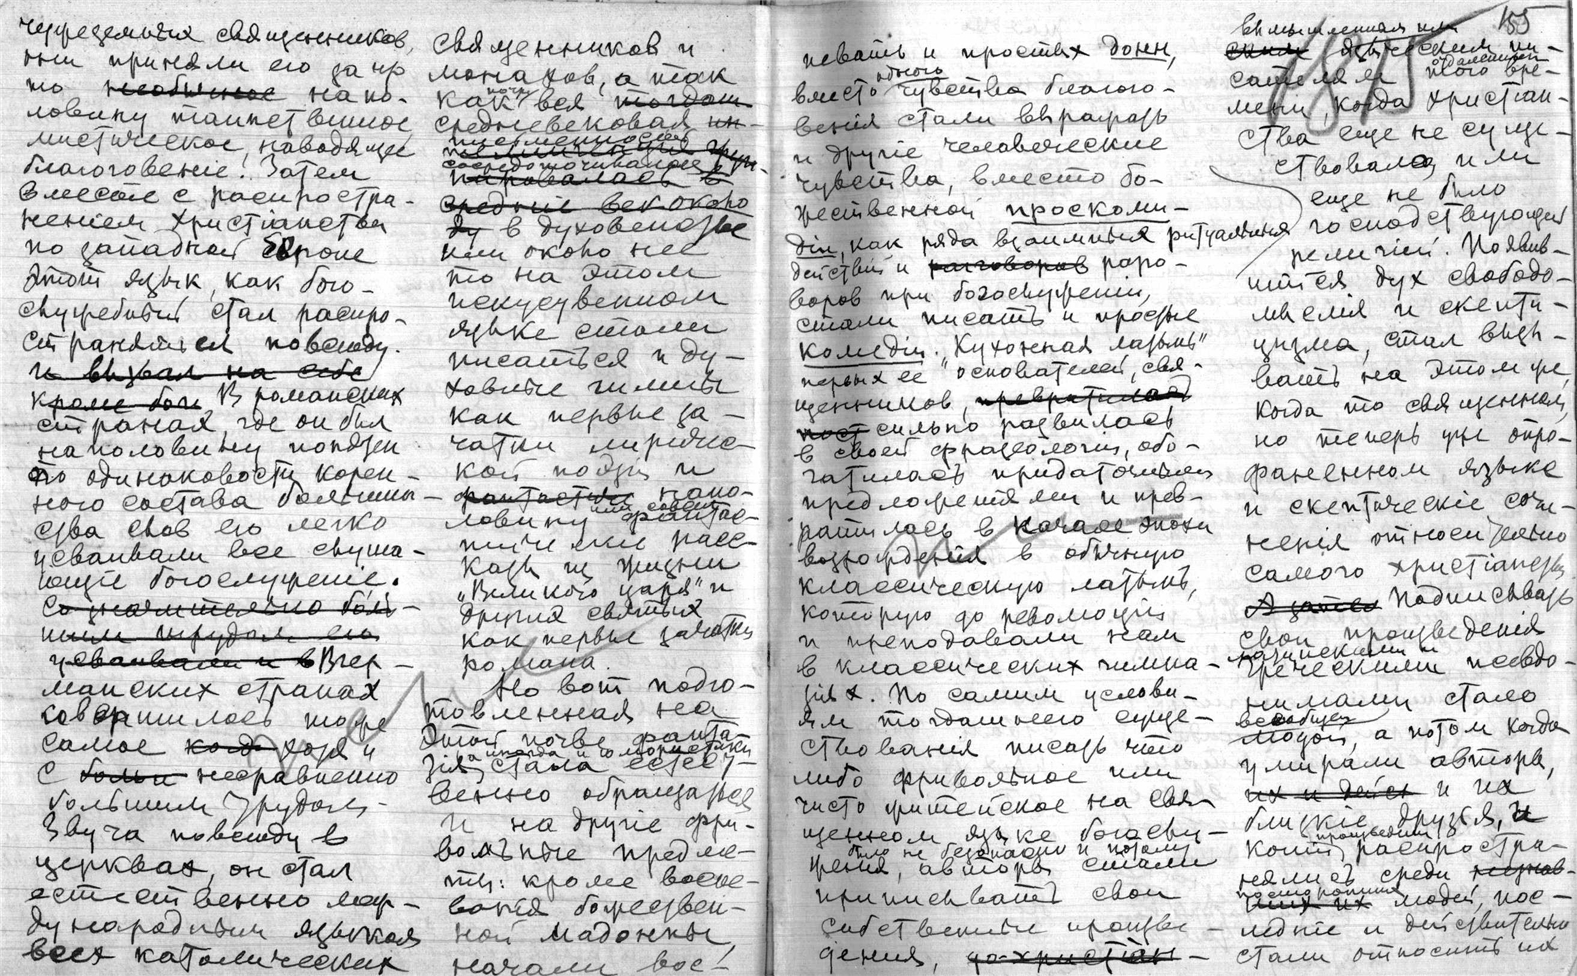 чужеземных священников,
они приняли его за что
то необычное напо-
ловину таинственное,
мистическое, наводящее
благоговеніе! Затем
вместе с распростра-
неніем христіанства
по западной Европе
этот язык, как бого-
служебный стал распро-
страняться повсюду.
и вызвал на себе
кроме бог В романских
странах, где он был
наполовину понятен
по одинаковости корен-
ного состава большин-
ства слов его легко
усваивали все слуша-
ющіе богослуженіе.
Со значительно боль-
шим трудом его
усваивали и в В гер-
манских странах
совершилось то же
самое когда хотя и
с больш несравненно
большим трудом.
Звуча повсюду в
церквах, он стал
естественно меж-
дународным языком
всех католических
священников и
монахов, а так
как почти вся тогдаш
средневековая ин-
письменность
сосредоточивалась
средніе век около
ду в духовенстве
или около нее
то на этом
искусственном
языке стали
писаться и ду-
ховные гимны
как первые за-
чатки лириче-
ской поэзіи и
фантастич напо-
ловину или совсем фантас-
тическіе расс-
казы из жизни
„Великого царя" и
других святых
как первые зачатки
романа.
Но вот подго-
товленная на
этой почве фанта-
зія, а иногда и юмористика
стала естест-
венно обращаться
и на другіе фри-
вольные предме-
ты: кроме воспе-
ванія божествен-
ной Мадонны,
начали вос-
певать и простых донн,
вместо одного чувства благого-
венія стали выражать
и другіе человеческие
чувства, вместо бо-
жественной проскоми-
діи, как ряда взаимных ритуальных
действій и разговоров разго-
воров при богослуженіи,
стали писать и простые
комедіи. „Кухонная латынь"
первых ее основателей, свя-
щенников, превратилась
пост сильно развилась
в своей фразеологіи, обо-
гатилась придаточными
предложеніями и прев-
ратилась в начале эпохи
возрожденія в обычную
классическую латынь,
которую до революціи
и преподавали нам
в классических гимна-
зіях. По самим услові-
ям тогдашнего суще-
ствованія писать что
либо фривольное или
чисто житейское на свя-
щенном языке богослу-
женія, было не безопасно и потому
авторы стали
приписывать свои
собственные произве-
денія, до христіан-
155
1875
вымышленным или
языческим пи-
сателям того отдаленнаго вре-
мени, когда христіан-
ства еще не суще-
ствовало, или
еще не было
господствующей
религіей. Появив-
шійся дух свободо-
мыслія и скепти-
цизма, стал вызы-
вать на этом же,
когда то священном,
но теперь уже опро-
фаненном языке
и скептическіе сочи-
ненія относительно
самого христіанства.
А затем Подписывать
свои произведенія
латинскими и
греческими псевдо-
нимами стало
всеобщей
модой, а потом когда
умирали авторы,
их и дейст и их
близкіе друзья, и
копіи произведений распростра-
нялись среди незнав-
посторонних
ших их людей, пос-
ледніе и действительно
стали относить их